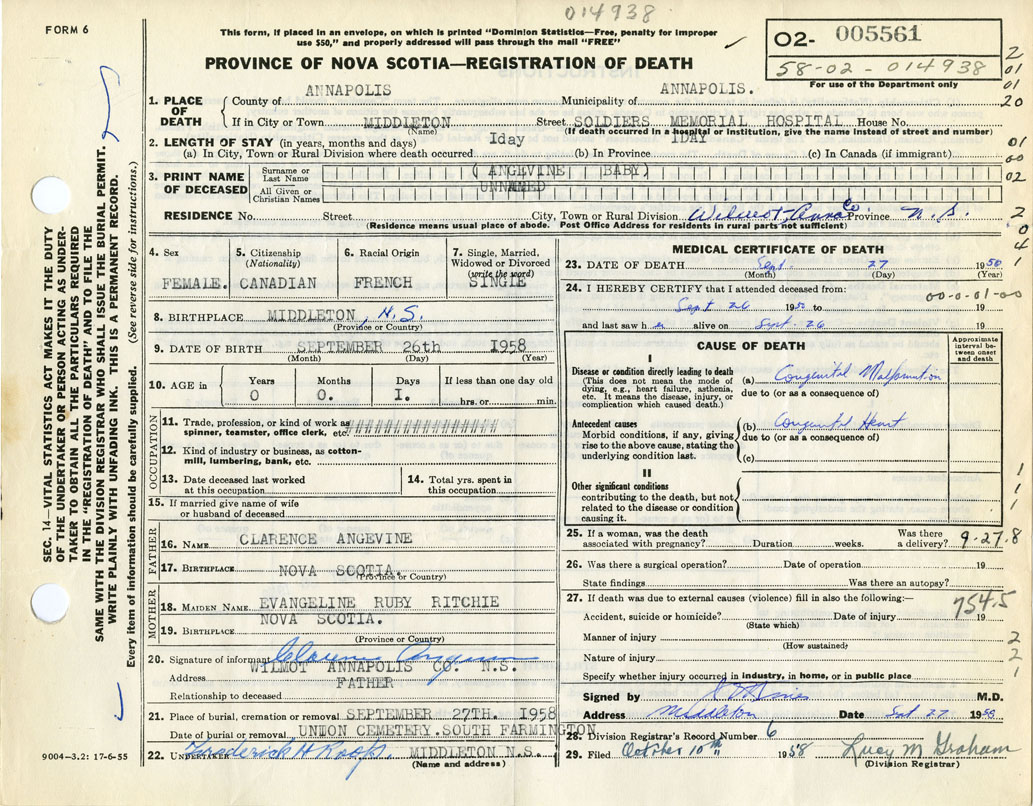 014938
FORM 6
This form, if placed in an envelope, on which is printed "Dominion Statistics—Free, penalty for improper
use $50," and properly addressed will pass through the mail "FREE"
02- 005561
58-02-014938
For use of the Department only
PROVINCE OF NOVA SCOTIA—REGISTRATION OF DEATH
1. PLACE OF DEATH
County of ANNAPOLIS Municipality of ANNAPOLIS.
If in City or Town MIDDLETON Street SOLDIERS MEMORIAL HOSPITAL House No.
(Name) (If death occurred in a hospital or institution, give the name instead of street and number)
2. LENGTH OF STAY (in years, months and days)
(a) In City, Town or Rural Division where death occurred 1day (b) In Province 1DAY (c) In Canada (if immigrant)
3. PRINT NAME OF DECEASED
Surname or Last Name ( ANGEVINE BABY)
All Given or Christian Names UNNAMED
RESIDENCE No. Street City, Town or Rural Division Wilmot, Anna Co Province N.S.
(Residence means usual place of abode. Post Office Address for residents in rural parts not sufficient)
4. Sex FEMALE.
5. Citizenship (Nationality) CANADIAN
6. Racial Origin FRENCH
7. Single, Married, Widowed or Divorced (write the word) SINGLE
8. BIRTHPLACE MIDDLETON, N.S.
(Province or Country)
9. DATE OF BIRTH SEPTEMBER 26th 1958
(Month) (Day) (Year)
10. AGE in Years 0 Months 0. Days I. If less than one day old hrs. or min.
OCCUPATION
11. Trade, profession, or kind of work as spinner, teamster, office clerk, etc. ################
12. Kind of industry or business, as cotton-mill, lumbering, bank, etc.
13. Date deceased last worked at this occupation
14. Total yrs. spent in this occupation
15. If married give name of wife or husband of deceased
FATHER
16. NAME CLARENCE ANGEVINE
17. BIRTHPLACE NOVA SCOTIA.
(Province or Country)
MOTHER
18. MAIDEN NAME EVANGELINE RUBY RITCHIE
19. BIRTHPLACE NOVA SCOTIA.
(Province or Country)
20. Signature of informant Clarence Angevine
Address WILMOT ANNAPOLIS CO. N.S.
Relationship to deceased FATHER
21. Place of burial, cremation or removal SEPTEMBER 27TH. 1958
Date of burial or removal UNION CEMETERY. SOUTH FARMINGTON
22. UNDERTAKER Frederick H Roop. MIDDLETON N.S.
(Name and address)
MEDICAL CERTIFICATE OF DEATH
23. DATE OF DEATH Sept. 27 1958
(Month) (Day) (Year)
24. I HEREBY CERTIFY that I attended deceased from: 00-0-01-00
Sept 26 1958 to 19
and last saw her alive on Sept. 26 19
CAUSE OF DEATH
Approximate interval between onset and death
I
Disease or condition directly leading to death
(This does not mean the mode of dying, e.g., heart failure, asthenia, etc. It means the disease, injury, or complication which caused death.)
(a) Congenital Malformation
due to (or as a consequence of)
Antecedent causes
Morbid conditions, if any, giving rise to the above cause, stating the underlying condition last.
(b) Congenital Heart
due to (or as a consequence of)
(c)
II
Other significant conditions
contributing to the death, but not related to the disease or condition causing it.
25. If a woman, was the death associated with pregnancy? Duration weeks. Was there a delivery? 9-27.8
26. Was there a surgical operation? Date of operation 19
State findings Was there an autopsy?
27. If death was due to external causes (violence) fill in also the following:—
754.5
Accident, suicide or homicide? Date of injury 19
(State which)
Manner of injury
(How sustained)
Nature of injury
Specify whether injury occurred in industry, in home, or in public place
Signed by M.D.
Address Middleton Date Sept 27 1958
28. Division Registrar's Record Number 6
29. Filed October 10th 1958 Lucy M Graham
(Division Registrar)
2
01
01
20
01
00
02
2
0
4
1
1
1
1
2
2
1
SEC. 14—VITAL STATISTICS ACT MAKES IT THE DUTY
OF THE UNDERTAKER OR PERSON ACTING AS UNDER-
TAKER TO OBTAIN ALL THE PARTICULARS REQUIRED
IN THE "REGISTRATION OF DEATH" AND TO FILE THE
SAME WITH THE DIVISION REGISTRAR WHO SHALL ISSUE THE BURIAL PERMIT.
WRITE PLAINLY WITH UNFADING INK. THIS IS A PERMANENT RECORD.
Every item of information should be carefully supplied. (See reverse side for instructions.)
9004—3.2: 17-6-55